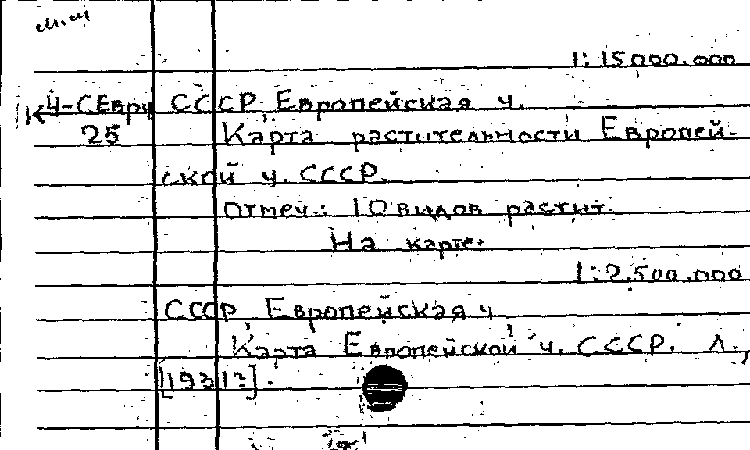 1:15000.000
К4-СЕвр ч СССР, Европейская ч.
25 Карта растительности Европей-
ской ч. СССР.
Отмеч.: 10 видов растит.
На карте:
1:2.500.000
СССР, Европейская ч.
Карта Европейской ч. СССР. Л.,
[1931?].